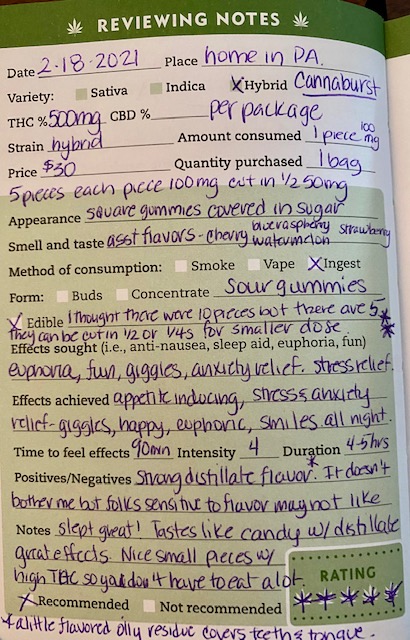 REVIEWING NOTES
Date 2-18-2021 Place home in PA.
Variety: Sativa Indica Hybrid Cannaburst
THC % 500mg CBD % per package
Strain hybrid Amount consumed 1 piece 100 mg
Price $30 Quantity purchased 1 bag
5 pieces each piece 100mg cut in 1/2 50mg
Appearance square gummies covered in sugar
Smell and taste asst flavors - cherry blueraspberry watermelon strawberry
Method of consumption: Smoke Vape Ingest
Form: Buds Concentrate Sour gummies
Edible I thought there were 10 pieces but there are 5 *
They can be cut in 1/2 or 1/4s for smaller dose.
Effects sought (i.e., anti-nausea, sleep aid, euphoria, fun)
euphoria, fun, giggles, anxiety relief. stress relief.
Effects achieved appetite inducing, stress & anxiety
relief - giggles, happy, euphoric, smiles all night.
Time to feel effects 90min Intensity 4 Duration 4-5 hrs
Positives/Negatives Strong distillate flavor.* It doesn't
bother me but folks sensitive to flavor may not like
Notes slept great! Tastes like candy w/ distillate
great effects. Nice small pieces w/
high THC so you don't have to eat a lot.
RATING
Recommended Not recommended
* a little flavored oily residue covers teeth & tongue